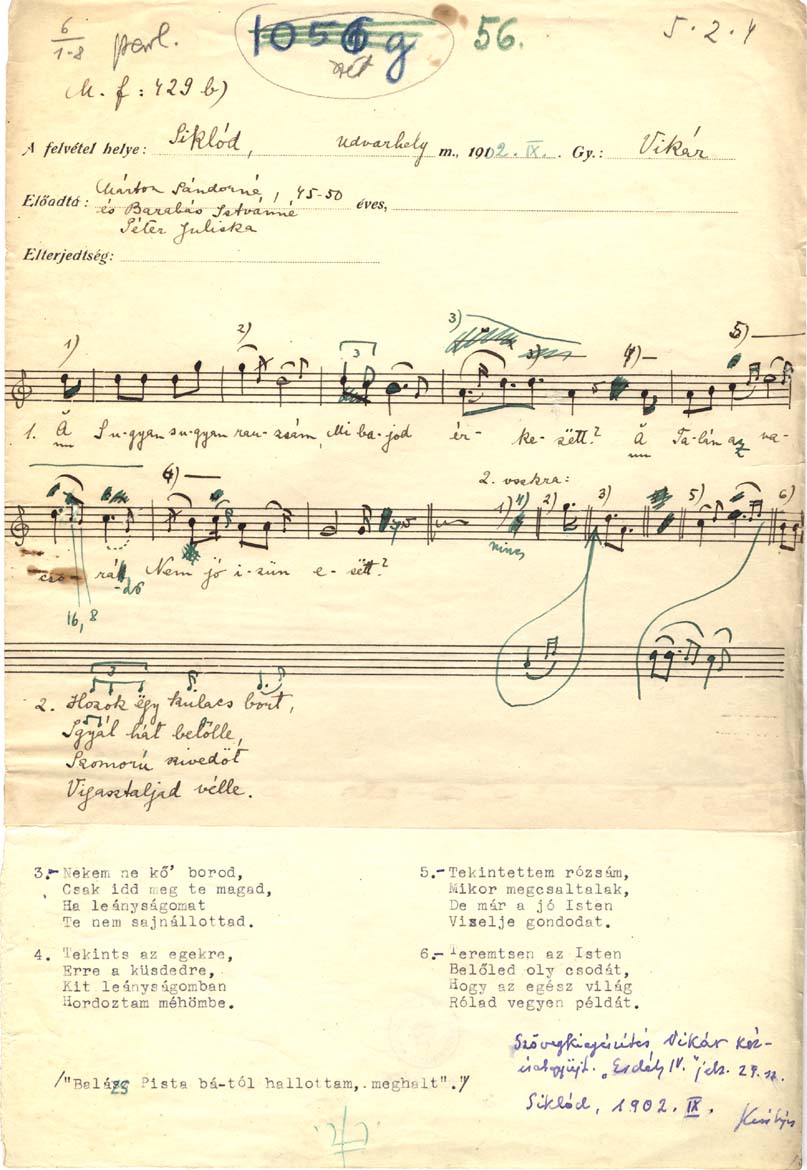 6/1-8 parl. 1056 g 56. 5.2.4
M. f: 429 b)
A felvétel helye: Siklód, Udvarhely m., 1902. IX. Gy.: Vikár
Előadta: Márton Sándorné, 45-50 éves,
és Barabás Istvánné
Péter Juliska
Elterjedtség:
1) 2) 3 3) 4) 5)
1. Su-gyan su-gyan ru-zsám, Mi ba-jod ér- ke- zëtt? Ta-lán az va-
6) 2. vszkra: 1) 4) 2) 3) 5) 6)
nincs
cso- rád Nem jó i-zün e-sëtt?
16, 8
3
2. Hozok ëgy kulacs bort,
Igyál hát belőlle,
Szomorú szivedöt
Vigasztaljad vélle.
3.- Nekem ne kő' borod,
Csak idd meg te magad,
Ha leányságomat
Te nem sajnállottad.
4. Tekints az egekre,
Erre a küsdedre,
Kit leányságomban
Hordoztam méhömbe.
5.- Tekintettem rózsám,
Mikor megcsaltalak,
De már a jó Isten
Viselje gondodat.
6.- Teremtsen az Isten
Belőled oly csodát,
Hogy az egész világ
Rólad vegyen példát.
Szövegkiegészítés Vikár kéz-
"Erdély IV." jelz. 27.
Siklód, 1902. IX.
/"Balázs Pista bá-tól hallottam, meghalt"./